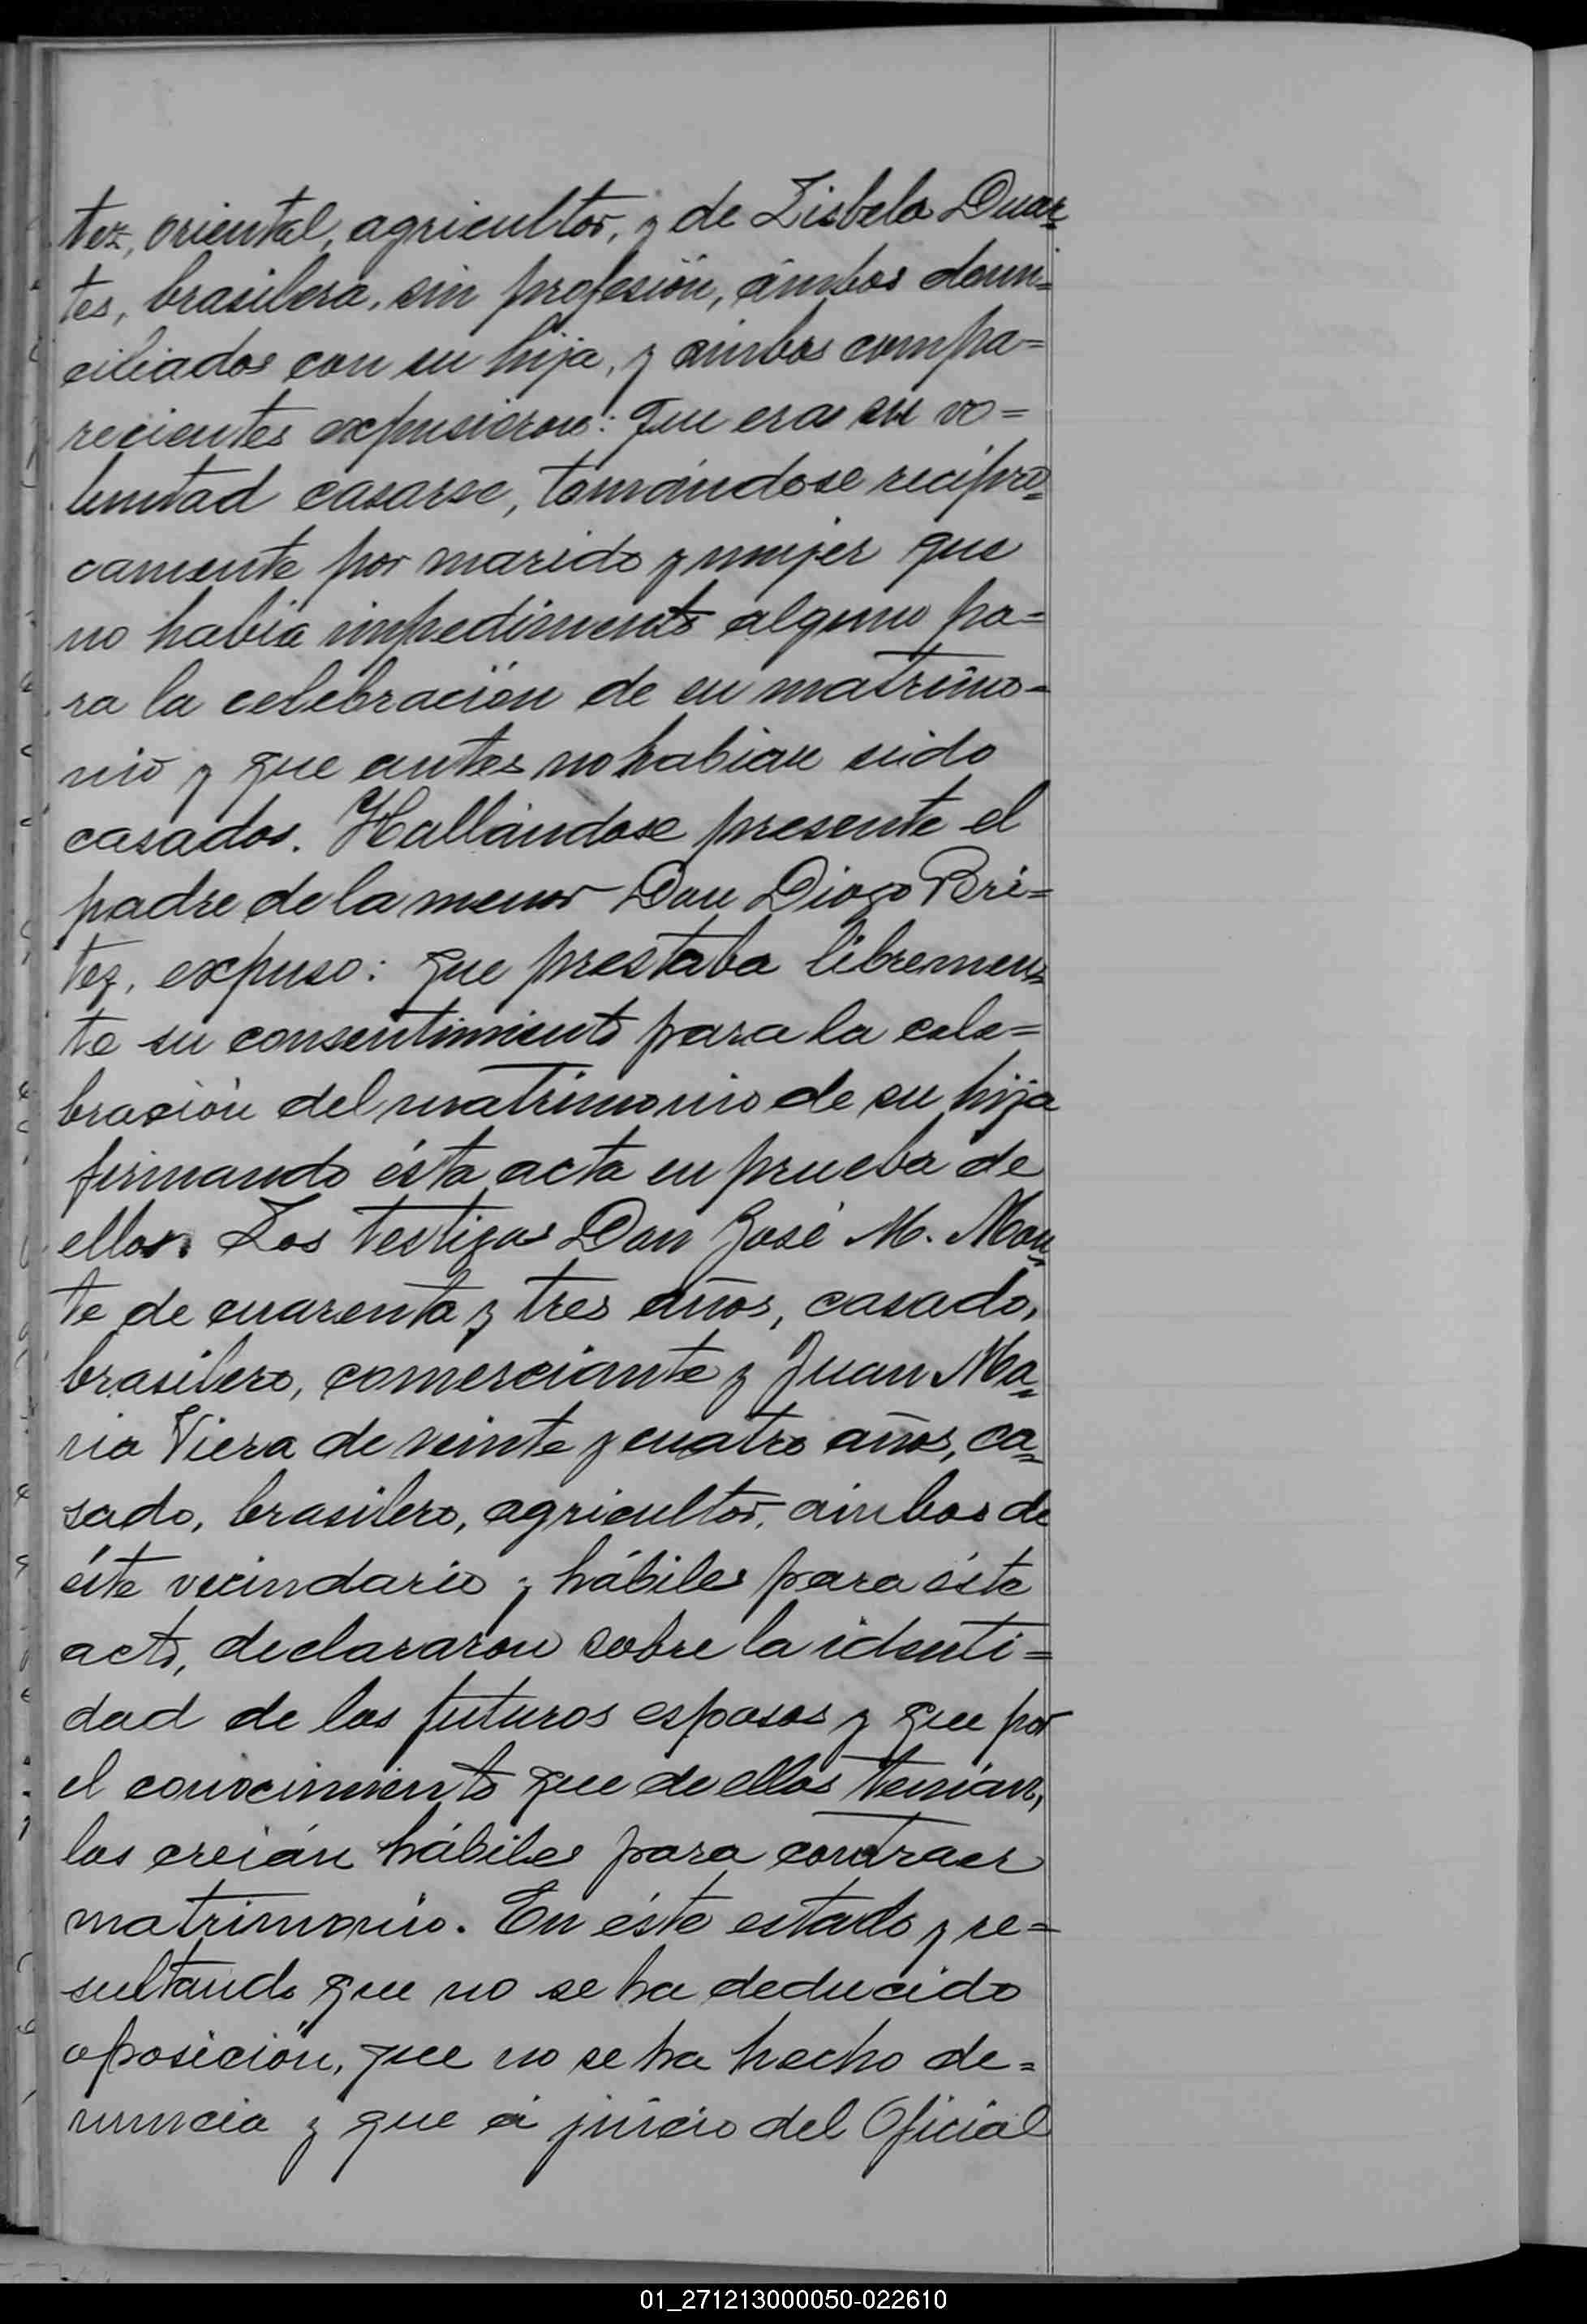 tez, oriental, agricultor, y de Lisbela Duar=
tes, brasilera, sin profesión, ámbos domi=
ciliados con su hija, y ámbos compa=
recientes expusieron: Que era su vo=
luntad casarse, tomándose recípro=
camente por marido y mujer que
no había impedimento alguno pa=
ra la celebración de su matrimo=
nio y que antes no habian sido
casados. Hallándose presente el
padre de la menor Don Diogo Beri=
tez, expuso: Que prestaba libremen=
te su consentimiento para la cele=
bración del matrimonio de su hija
firmando ésta acta en prueba de
ello. Los testigos Don José M. Mon=
te de cuarenta y tres años, casado,
brasilero, comerciante y Juan Ma=
ria Viera de veinte y cuatro años, ca=
sado, brasilero, agricultor, ámbos de
éste vecindario y hábiles para éste
acto, declararon sobre la identi=
dad de los futuros esposos y que por
el conocimiento que de ellos tenían,
los creían hábiles para contraer
matrimonio. En éste estado y re=
sultando que no se ha deducido
oposición, que no se ha hecho de=
nuncia y que á juicio del Oficial
01_271213000050-022610